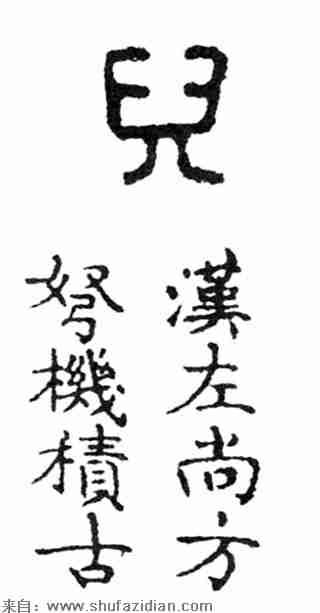 兒
漢左尚方
弩機積古
来自：www.shufazidian.com